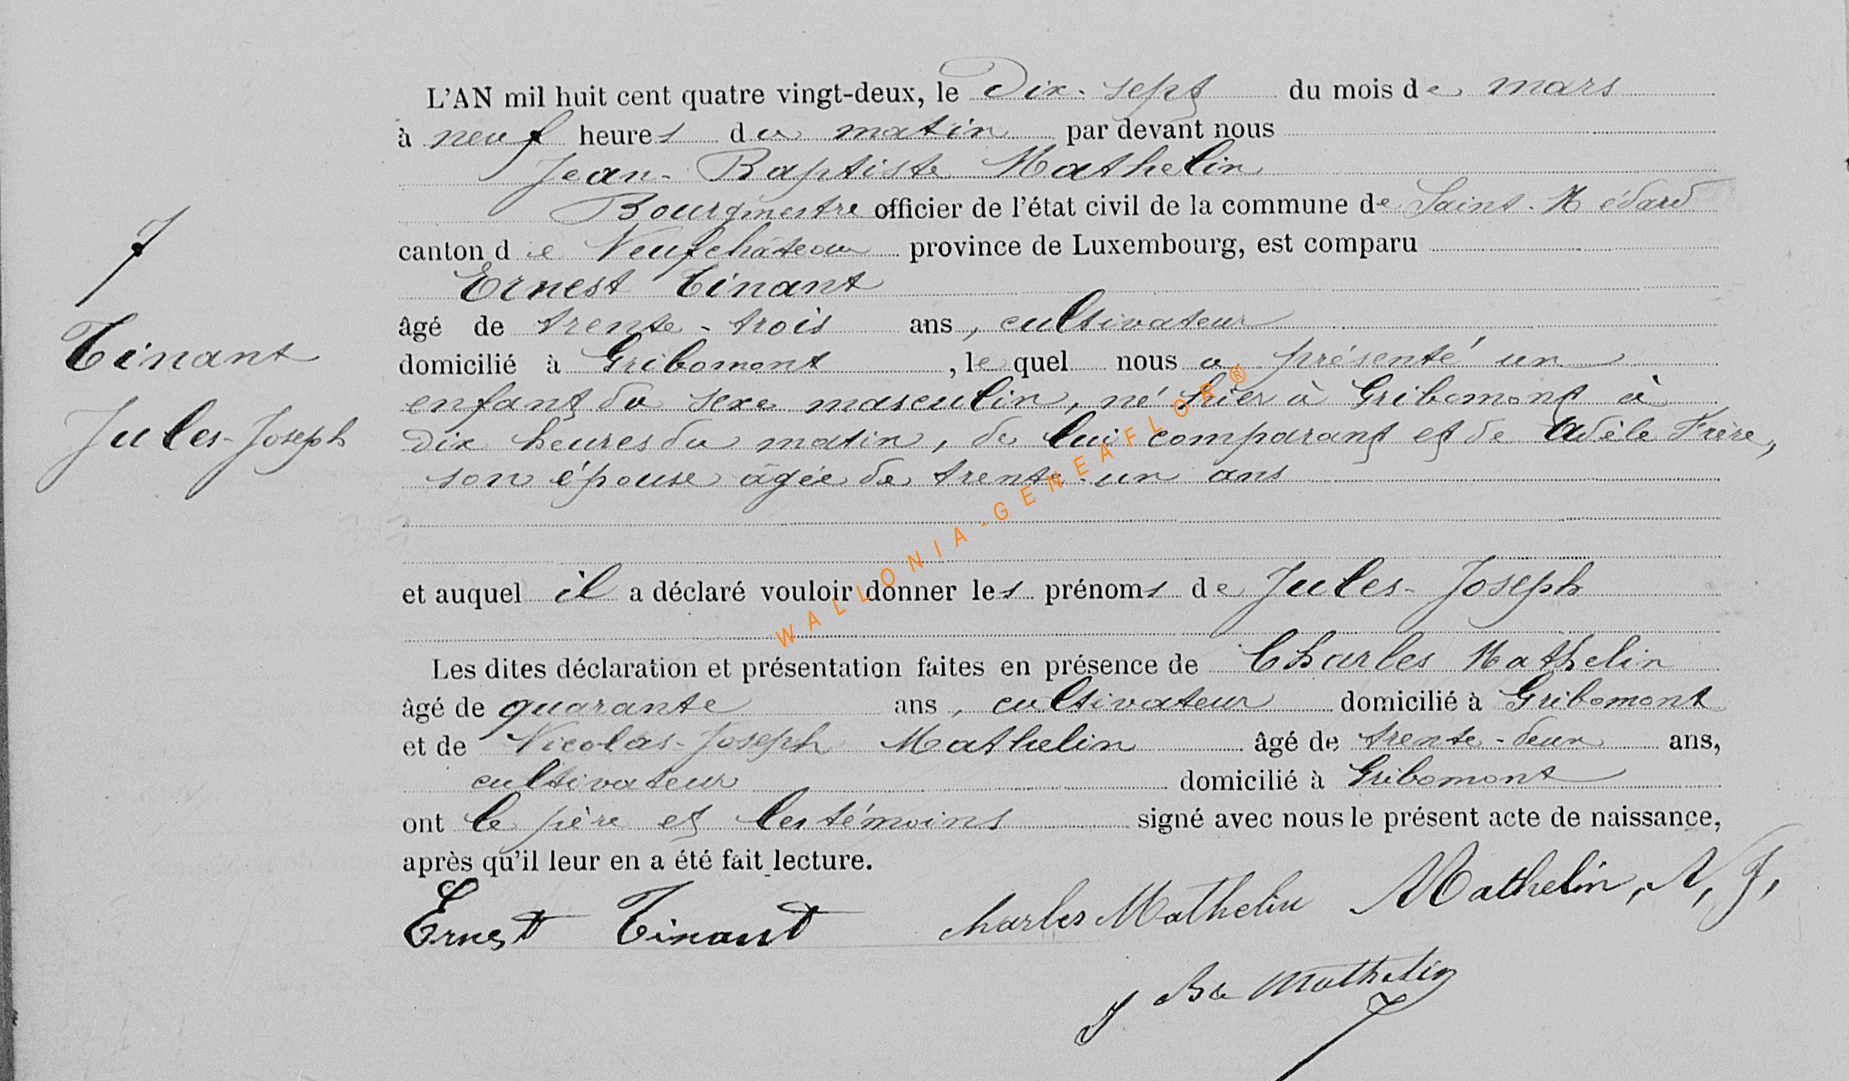 L'AN mil huit cent quatre vingt-deux, le Dix-sept du mois de mars
à neuf heures du matin par devant nous
Jean-Baptiste Mathelin
Bourgmestre officier de l'état civil de la commune de Saint-Médard
canton de Neufchâteau province de Luxembourg, est comparu
Ernest Tinant
âgé de trente-trois ans, cultivateur
domicilié à Gribomont, lequel nous a présenté un
enfant du sexe masculin, né hier à Gribomont à
dix heures du matin, de lui comparant et de Adèle Frère,
son épouse âgée de trente-un ans
et auquel il a déclaré vouloir donner les prénoms de Jules-Joseph
Les dites déclaration et présentation faites en présence de Charles Mathelin
âgé de quarante ans, cultivateur domicilié à Gribomont
et de Nicolas-Joseph Mathelin âgé de trente-deux ans,
cultivateur domicilié à Gribomont
ont le père et les témoins signé avec nous le présent acte de naissance,
après qu'il leur en a été fait lecture.
Ernest Tinant Charles Mathelin Mathelin, N, J,
J Bte Mathelin
7
Tinant
Jules-Joseph
WALLONIA-GENEAFLOR®